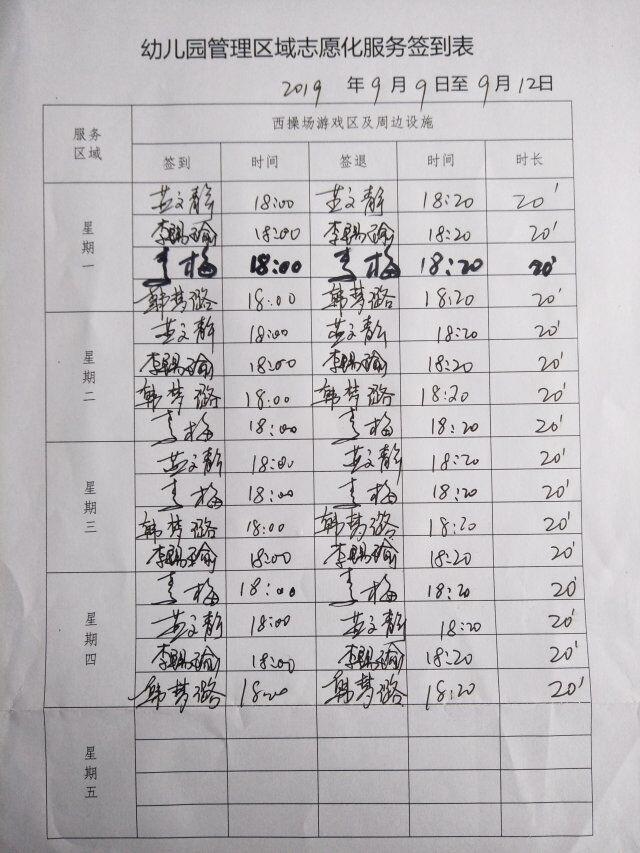 幼儿园管理区域志愿化服务签到表
2019 年 9 月 9 日至 9 月 12 日
服务区域 西操场游戏区及周边设施
签到 时间 签退 时间 时长
星期一
文静 18:00 文静 18:20 20'
李赐瑜 18:00 李赐瑜 18:20 20'
梅 18:00 梅 18:20 20'
韩梦璐 18:00 韩梦璐 18:20 20'
星期二
文静 18:00 文静 18:20 20'
李赐瑜 18:00 李赐瑜 18:20 20'
韩梦璐 18:00 韩梦璐 18:20 20'
梅 18:00 梅 18:20 20'
星期三
文静 18:00 文静 18:20 20'
梅 18:00 梅 18:20 20'
韩梦璐 18:00 韩梦璐 18:20 20'
李赐瑜 18:00 李赐瑜 18:20 20'
星期四
梅 18:00 梅 18:20 20'
文静 18:00 文静 18:20 20'
李赐瑜 18:00 李赐瑜 18:20 20'
韩梦璐 18:00 韩梦璐 18:20 20'
星期五